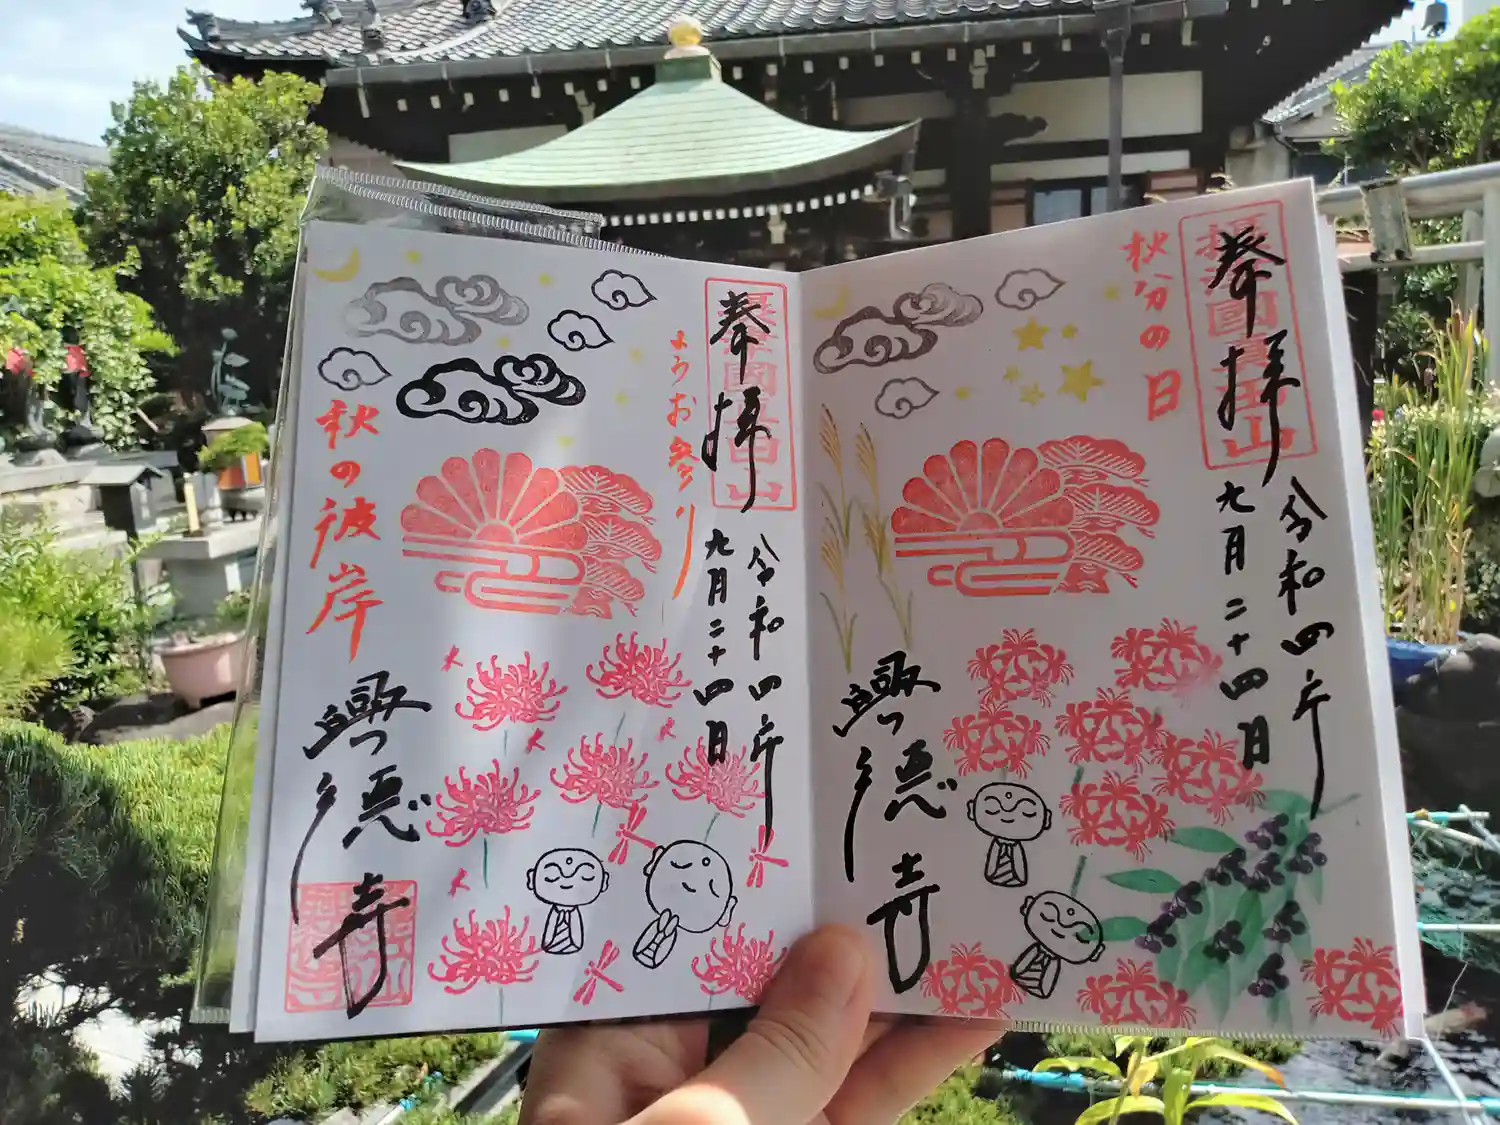 摂津國真田山
奉拝
令和四年
九月二十四日
秋分の日
興徳寺
摂津國真田山
奉拝
令和四年
九月二十四日
ようお参り
秋の彼岸
興徳寺